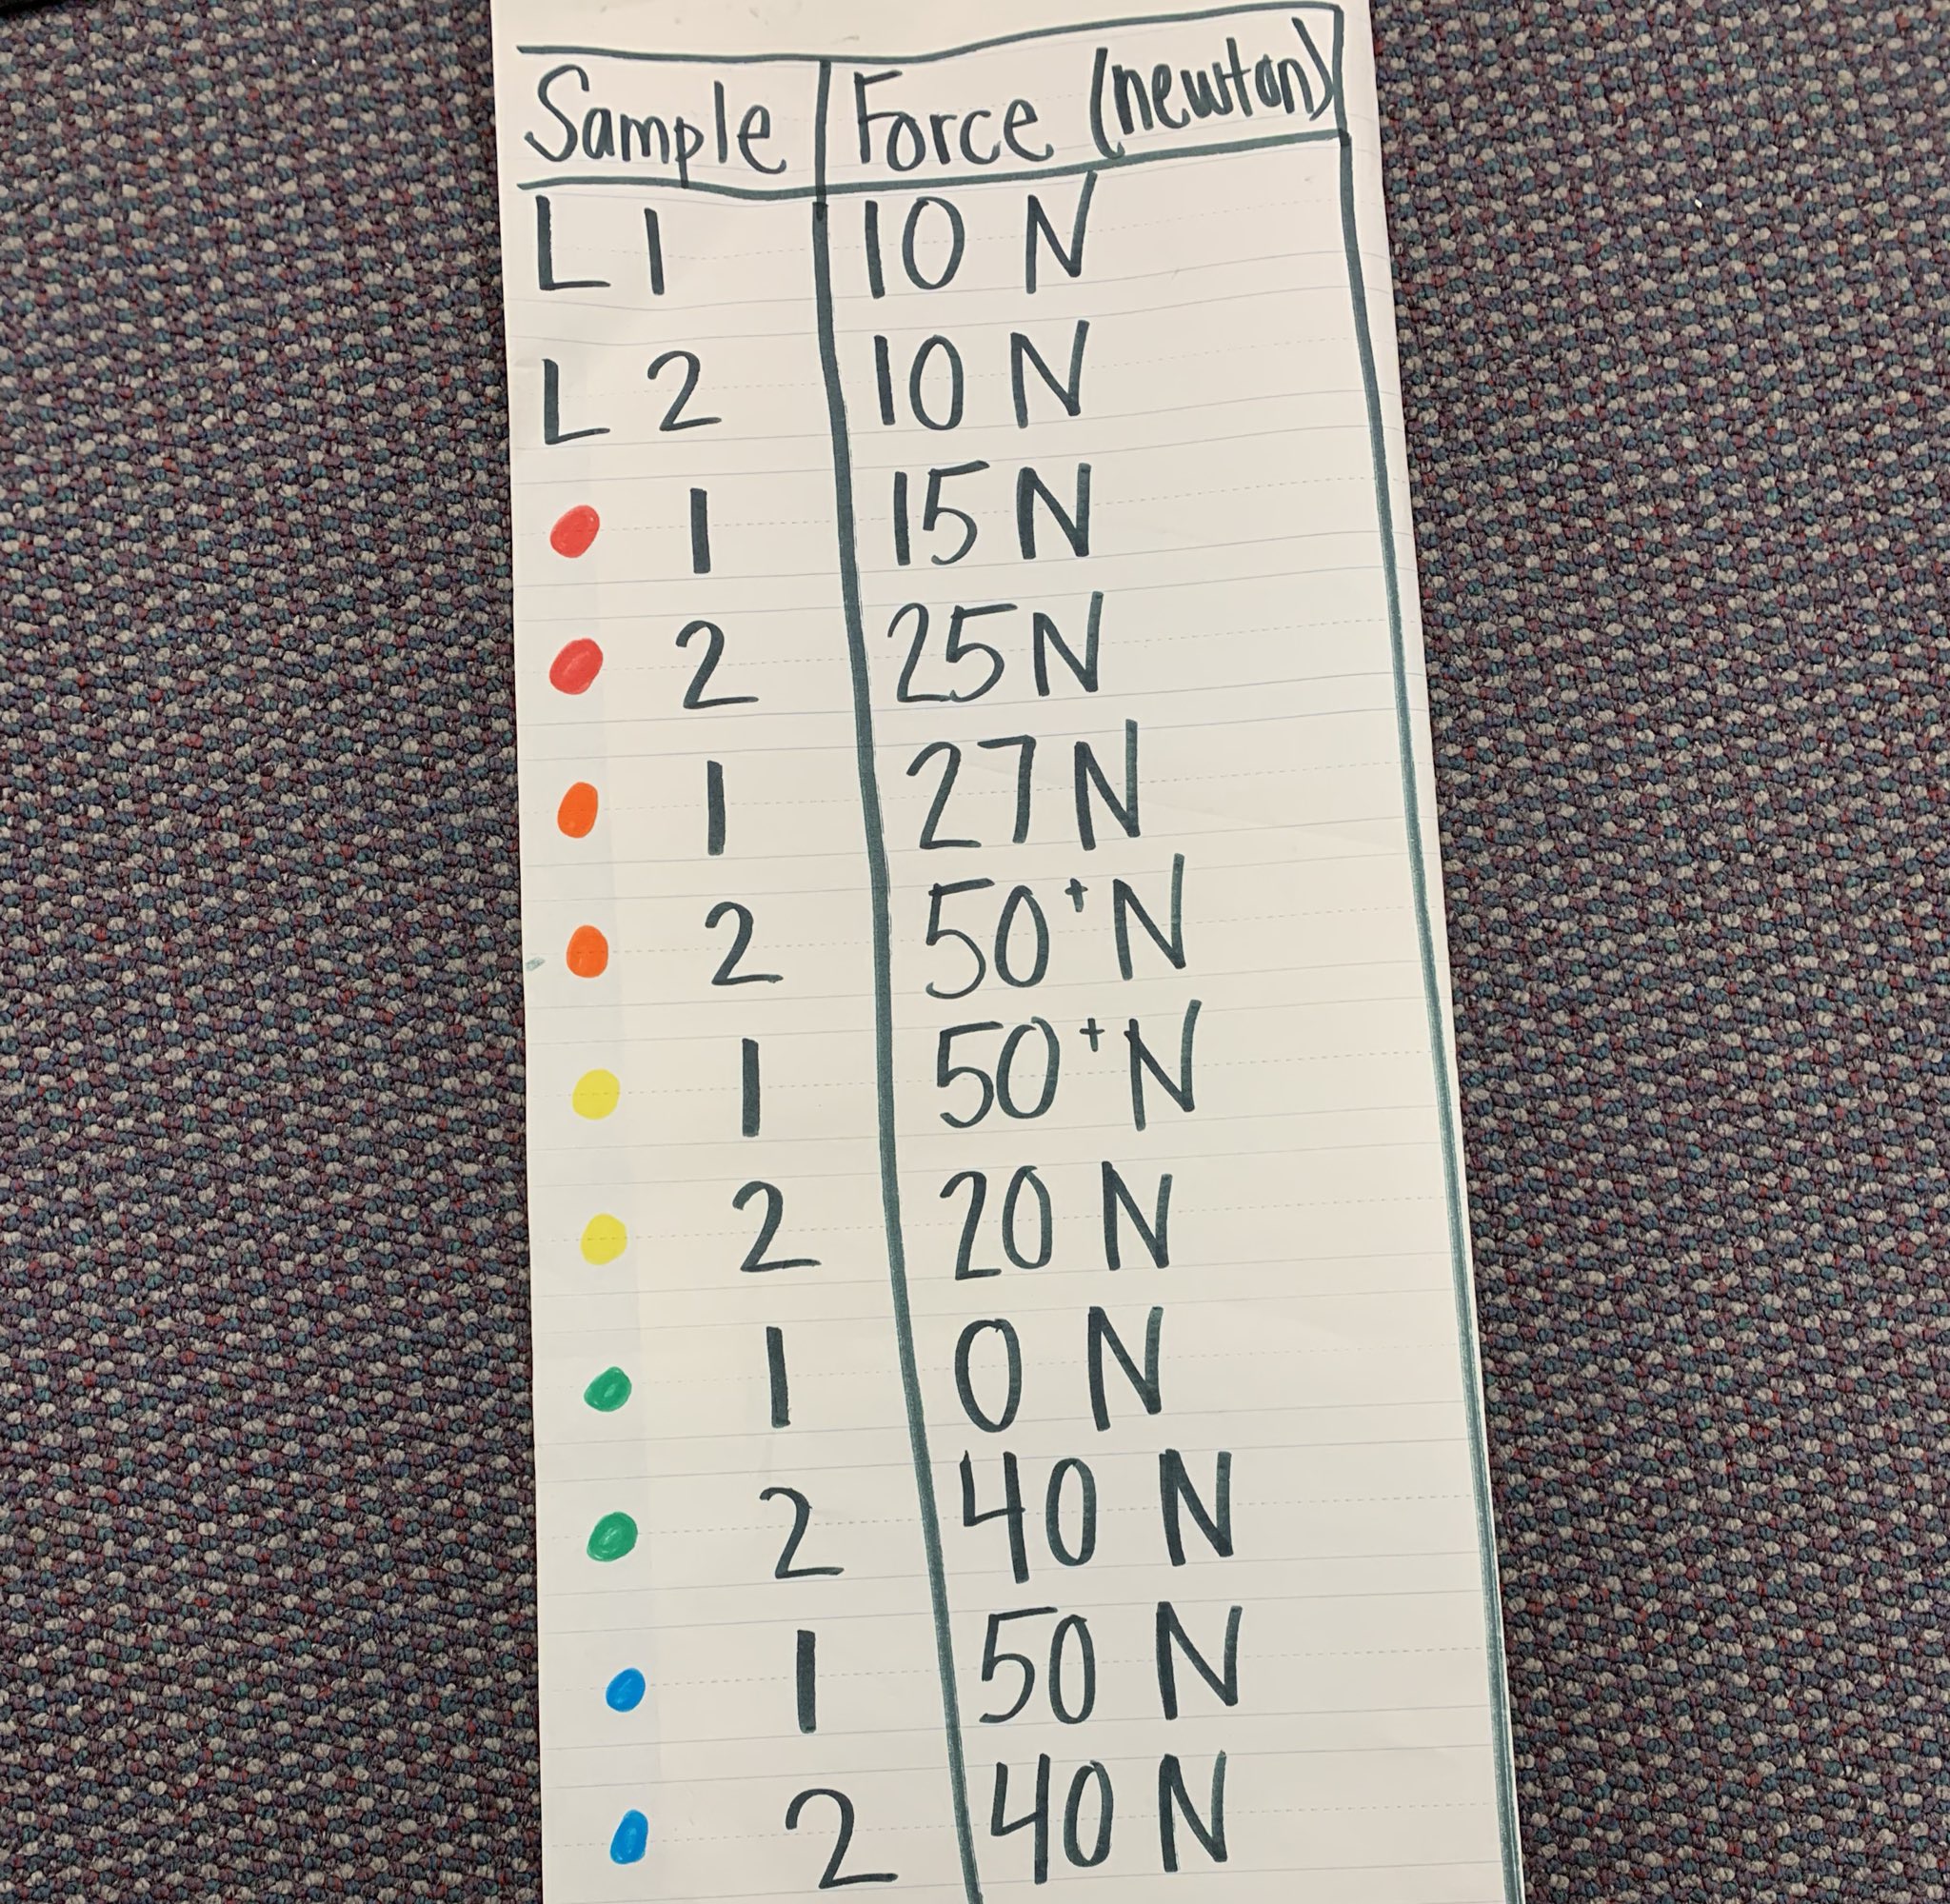 Sample Force (newton)
L 1 10 N
L 2 10 N
1 15 N
2 25 N
1 27 N
2 50+ N
1 50+ N
2 20 N
1 0 N
2 40 N
1 50 N
2 40 N